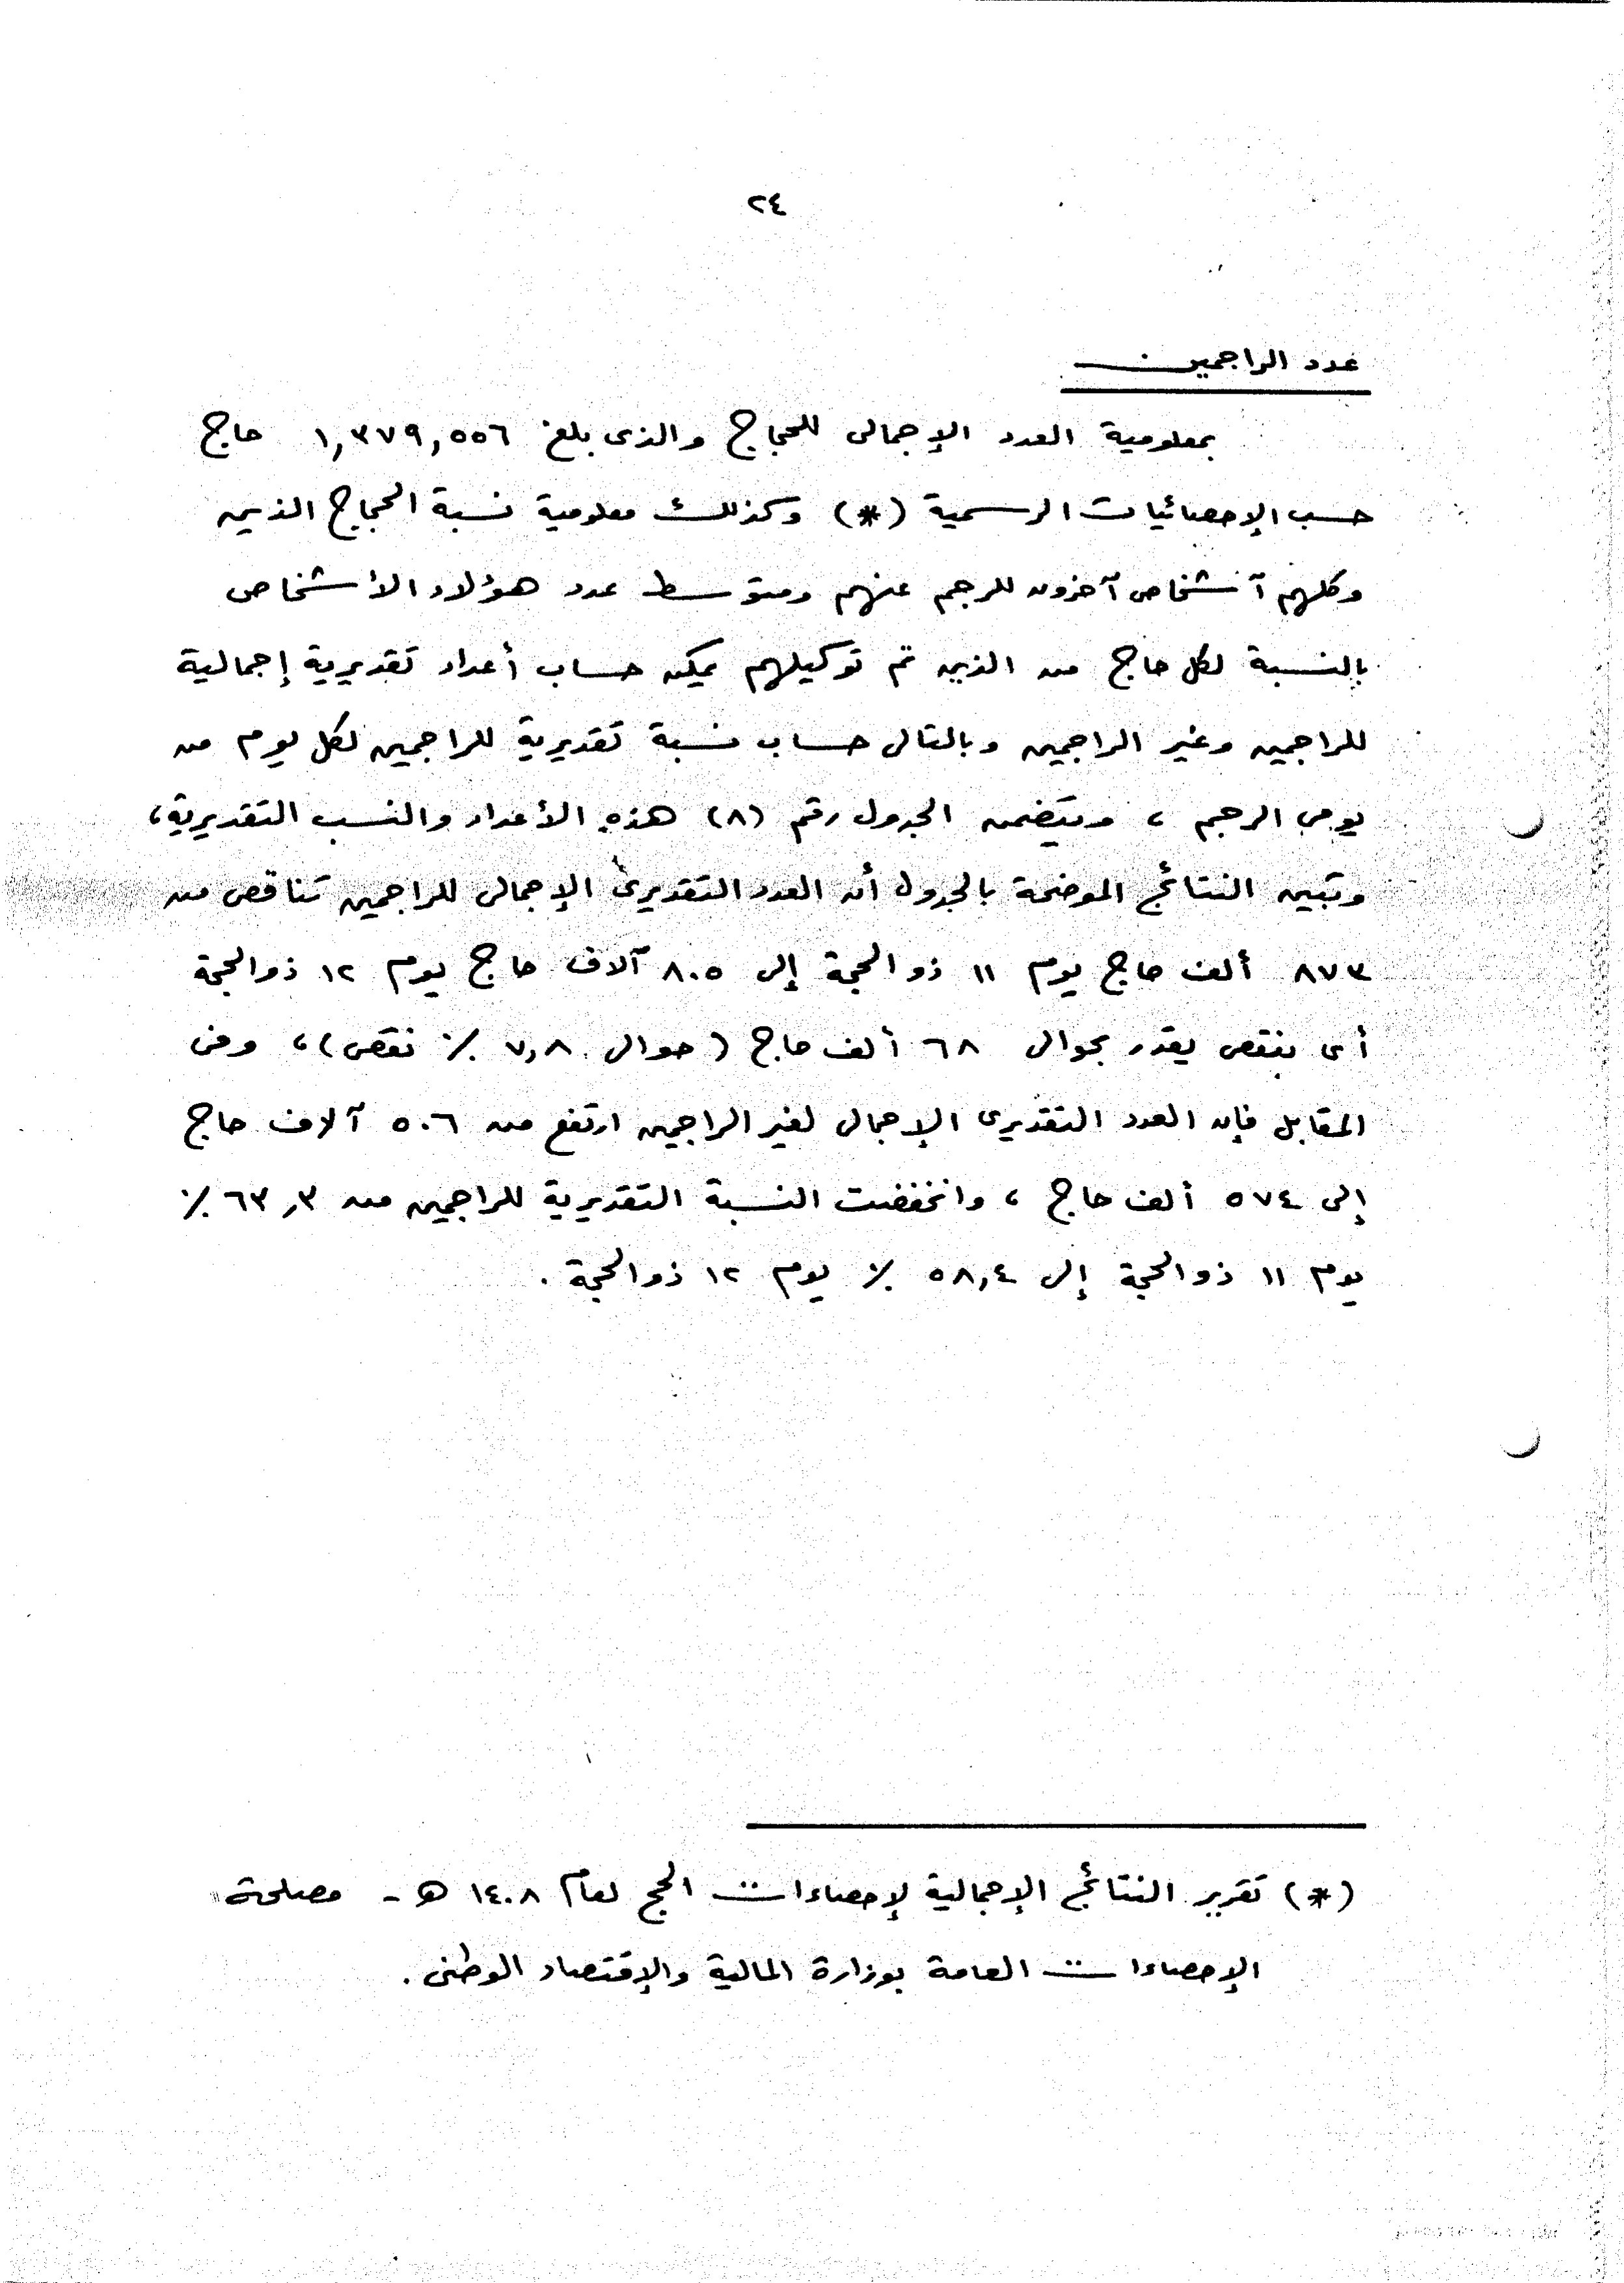 ٢٤
عدد الراجمين
بمعلومية العدد الإجمالى للحجاج والذى بلغ ١,٣٧٩,٥٥٦ حاج
حسب الإحصائيات الرسمية (*) وكذلك معلومية نسبة الحجاج الذين
وكلهم آشخاص آخرون للرجم عنهم ومتوسط عدد هؤلاء الأشخاص
بالنسبة لكل حاج من الذين تم توكيلهم يمكن حساب أعداد تقديرية إجمالية
للراجمين وغير الراجمين وبالتالى حساب نسبة تقديرية للراجمين لكل يوم من
يومى الرجم ، ويتضمن الجدول رقم (٨) هذه الأعداد والنسب التقديرية،
وتبين النتائج الموضحة بالجدول أن العدد التقديرى الإجمالى للراجمين تناقص من
٨٧٣ ألف حاج يوم ١١ ذو الحجة إلى ٨٠٥ آلاف حاج يوم ١٢ ذو الحجة
أى بنقص يقدر بحوالى ٦٨ ألف حاج (حوالى ٧,٨ ٪ نقص)، وفى
المقابل فإن العدد التقديرى الإجمالى لغير الراجمين ارتفع من ٥٠٦ آلاف حاج
إلى ٥٧٤ ألف حاج ، وانخفضت النسبة التقديرية للراجمين من ٦٣,٣ ٪
يوم ١١ ذو الحجة إلى ٥٨,٤ ٪ يوم ١٢ ذو الحجة .
(*) تقرير النتائج الإجمالية لإحصاءات الحج لعام ١٤٠٨ هـ - مصلحة
الإحصاءات العامة بوزارة المالية والإقتصاد الوطنى .